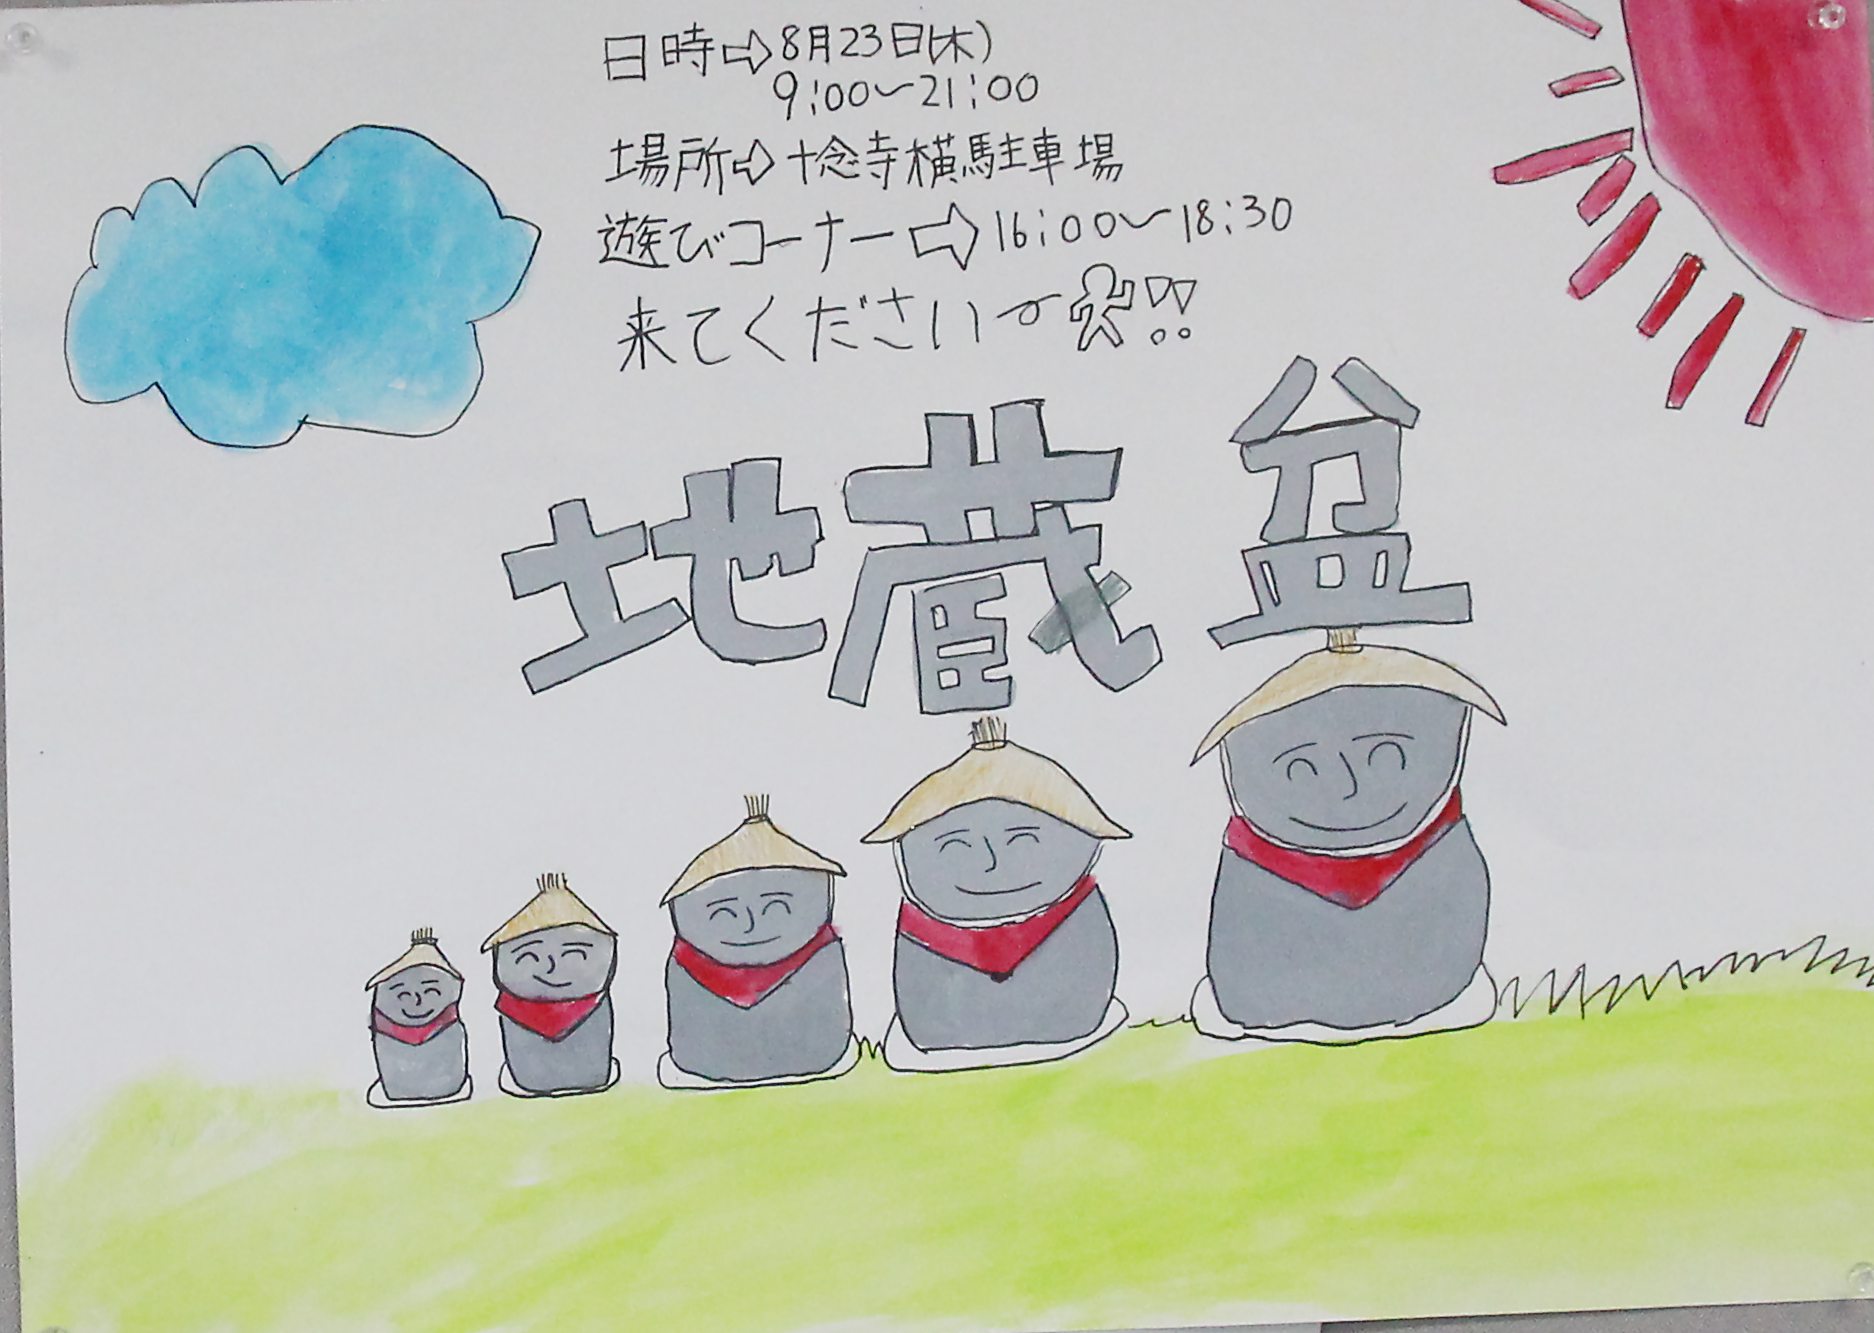 日時⇨8月23日(木)
9:00〜21:00
場所⇨十念寺横駐車場
遊びコーナー⇨16:00〜18:30
来てくださいー!!
地蔵盆